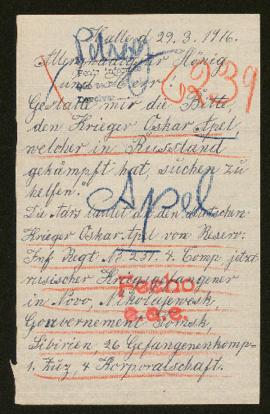 Halle d 29. 3. 1916.
Allergnädigster König
und Herr!
Gestatte mir die Bitte
den Krieger Oskar Apel
welcher in Russland
gekämpft hat, suchen zu
helfen.
Apel
Krieger Oskar Apel von Reserv.
Inf Regt No 251. 4 Comp jetzt
russischer Kriegsgefangener
in Novo, Nikolajewosk
Gouvernement Tomsk
Sibirien, 26 Gefangenenkomp-
1. Zuz, 4 Korporalschaft.